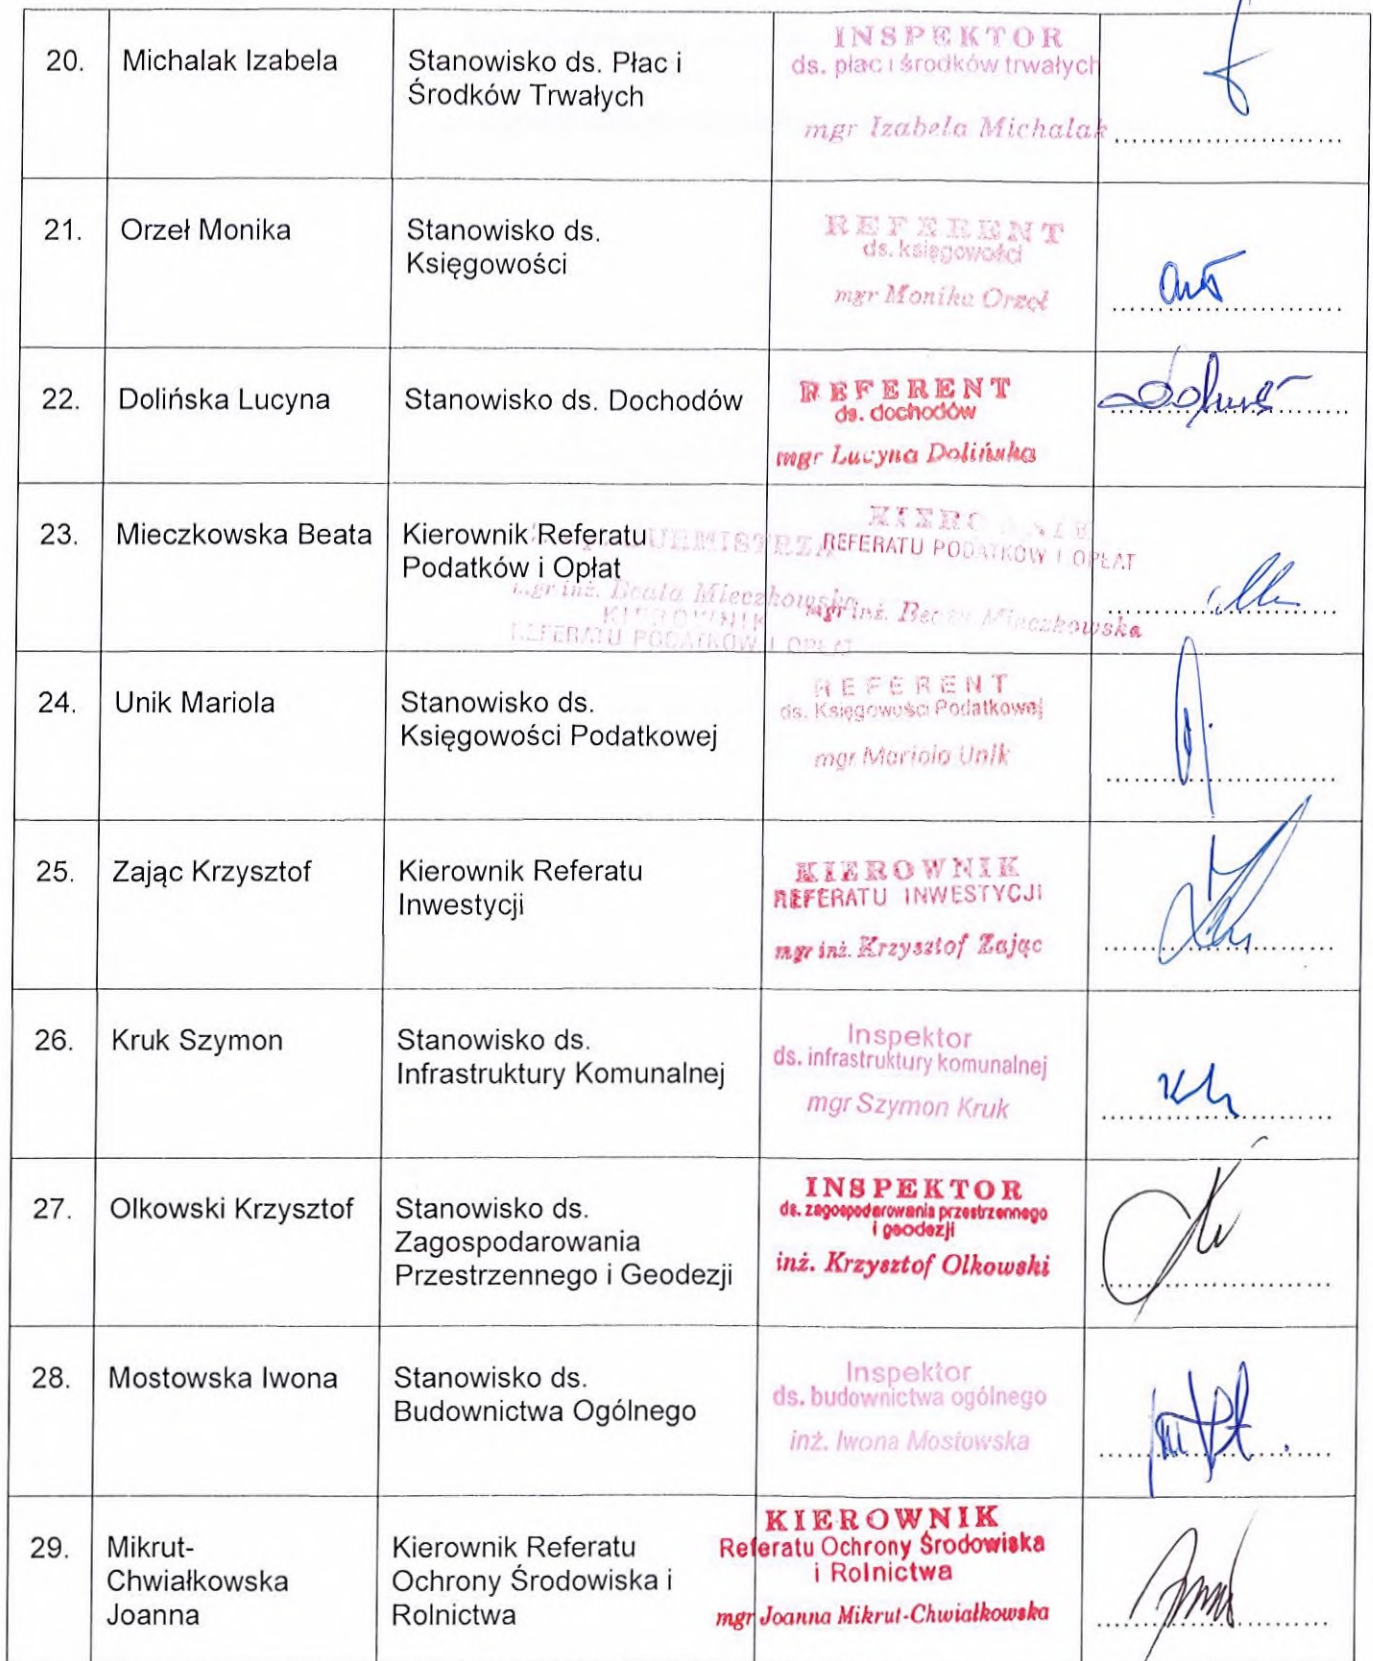 20. Michalak Izabela Stanowisko ds. Płac i Środków Trwałych
INSPEKTOR
ds. płac i środków trwałych
mgr Izabela Michalak
21. Orzeł Monika Stanowisko ds. Księgowości
REFERENT
ds. księgowości
mgr Monika Orzeł
22. Dolińska Lucyna Stanowisko ds. Dochodów
REFERENT
ds. dochodów
mgr Lucyna Dolińska
23. Mieczkowska Beata Kierownik Referatu Podatków i Opłat
mgr inż. Beata Mieczkowska
KIEROWNIK
REFERATU PODATKÓW I OPŁAT
KIEROWNIK
REFERATU PODATKÓW I OPŁAT
mgr inż. Beata Mieczkowska
24. Unik Mariola Stanowisko ds. Księgowości Podatkowej
REFERENT
ds. Księgowości Podatkowej
mgr Mariola Unik
25. Zając Krzysztof Kierownik Referatu Inwestycji
KIEROWNIK
REFERATU INWESTYCJI
mgr inż. Krzysztof Zając
26. Kruk Szymon Stanowisko ds. Infrastruktury Komunalnej
Inspektor
ds. infrastruktury komunalnej
mgr Szymon Kruk
27. Olkowski Krzysztof Stanowisko ds. Zagospodarowania Przestrzennego i Geodezji
INSPEKTOR
ds. zagospodarowania przestrzennego
i geodezji
inż. Krzysztof Olkowski
28. Mostowska Iwona Stanowisko ds. Budownictwa Ogólnego
Inspektor
ds. budownictwa ogólnego
inż. Iwona Mostowska
29. Mikrut-Chwiałkowska Joanna Kierownik Referatu Ochrony Środowiska i Rolnictwa
KIEROWNIK
Referatu Ochrony Środowiska
i Rolnictwa
mgr Joanna Mikrut-Chwiałkowska